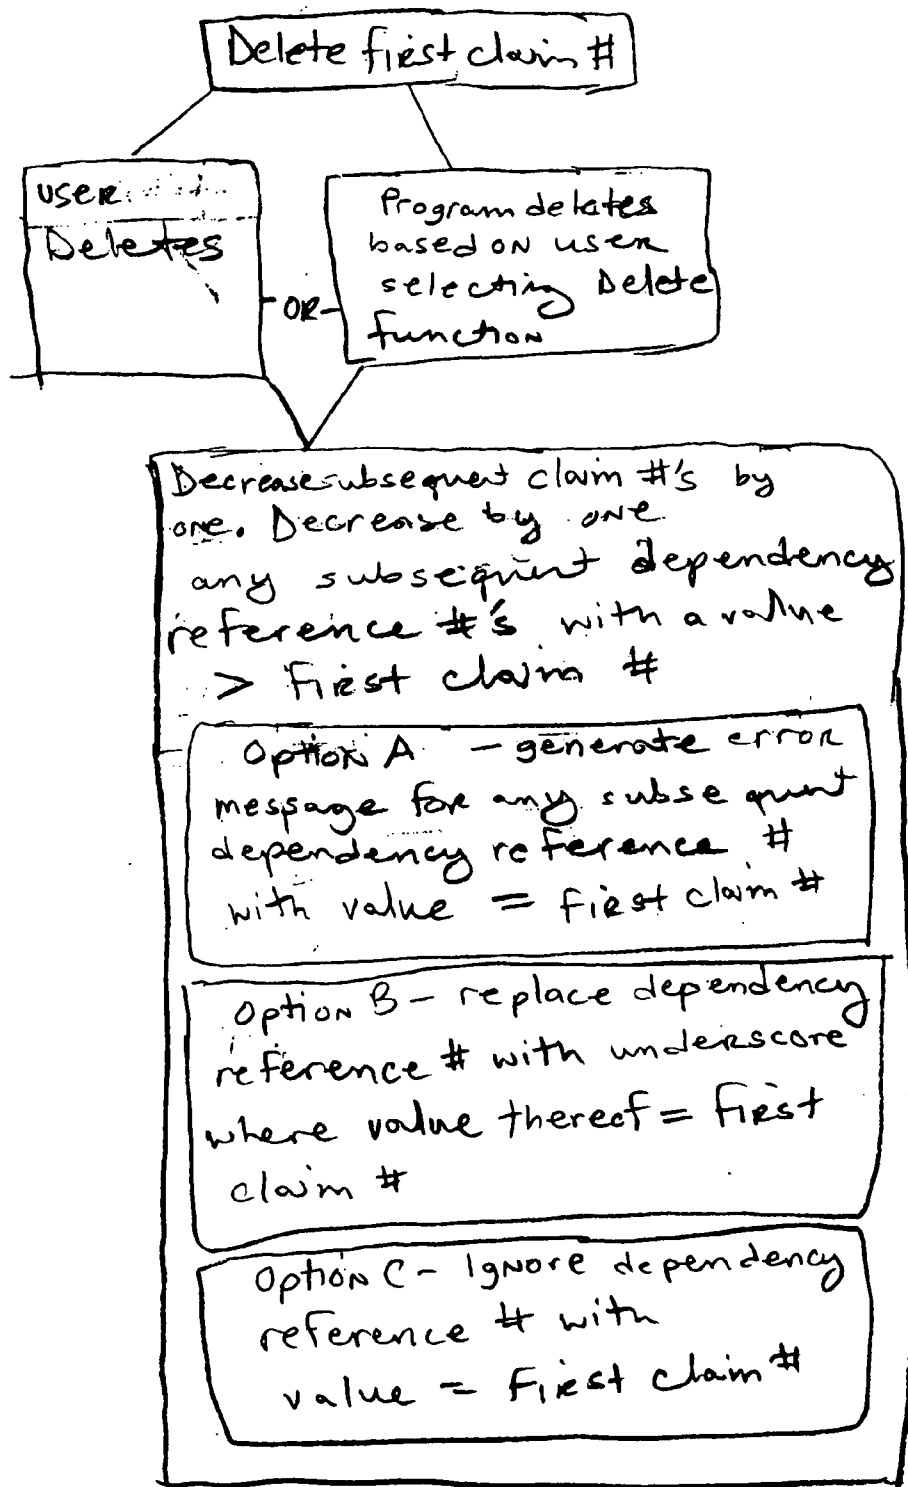 Delete first claim #
user
Deletes
- OR -
Program deletes
based on user
selecting Delete
function
Decrease subsequent claim #'s by
one. Decrease by one
any subsequent dependency
reference #'s with a value
> first claim #
Option A - generate error
message for any subsequent
dependency reference #
with value = first claim #
Option B - replace dependency
reference # with underscore
where value thereof = first
claim #
Option C - Ignore dependency
reference # with
value = first claim #